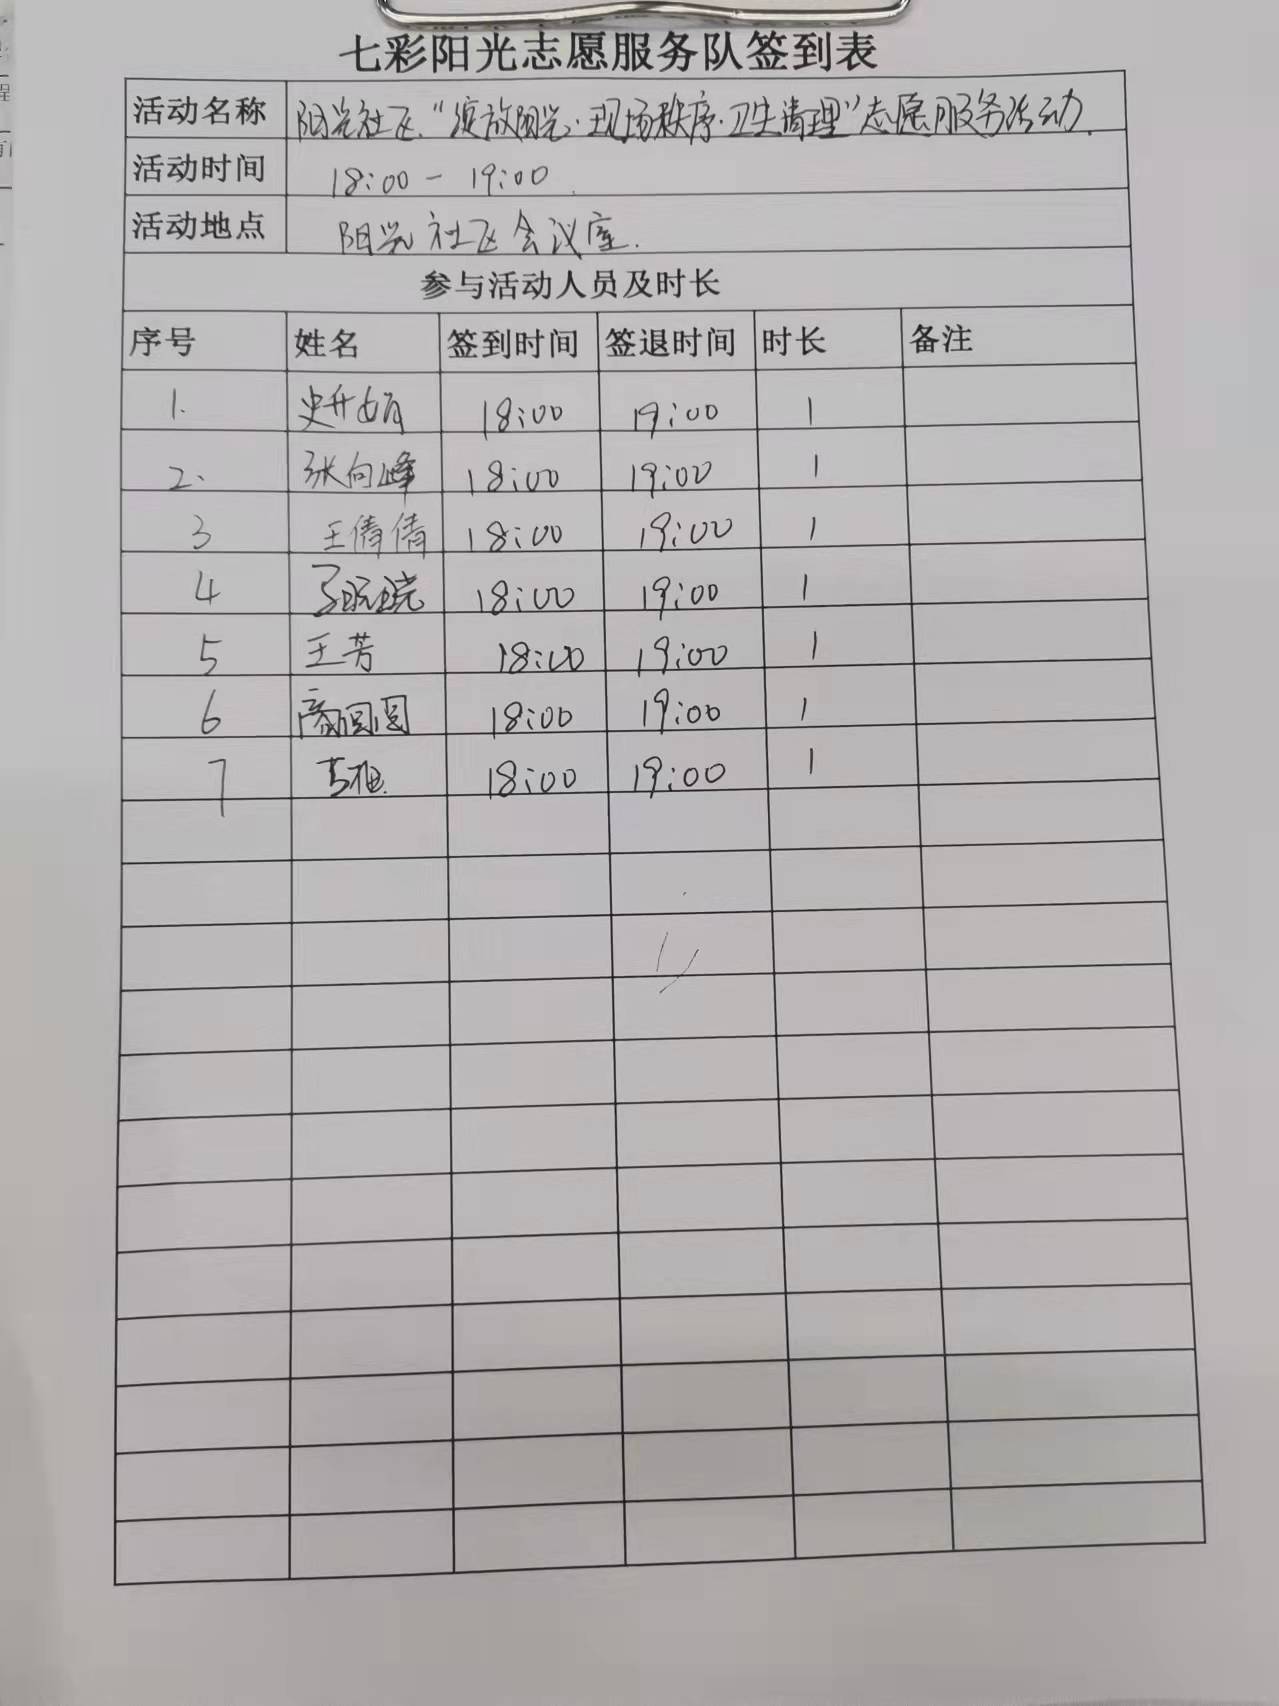 七彩阳光志愿服务队签到表
活动名称 阳光社区“绽放阳光·现场秩序·卫生清理”志愿服务活动.
活动时间 18:00 - 19:00.
活动地点 阳光社区会议室.
参与活动人员及时长
序号 姓名 签到时间 签退时间 时长 备注
1. 史升娟 18:00 19:00 1
2. 张向峰 18:00 19:00 1
3 王倩倩 18:00 19:00 1
4 18:00 19:00 1
5 王芳 18:00 19:00 1
6 商圆圆 18:00 19:00 1
7 18:00 19:00 1
程